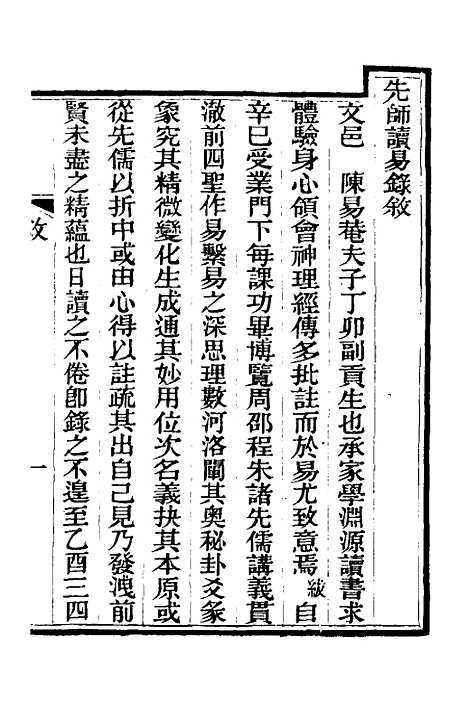 先師讀易錄敘
文邑　陳易菴夫子丁卯副貢生也承家學淵源讀書求
體驗身心領會神理經傳多批註而於易尤致意焉紱自
辛巳受業門下每課功畢博覽周邵程朱諸先儒講義貫
澈前四聖作易繫易之深思理數河洛闡其奧秘卦爻彖
象究其精微變化生成通其妙用位次名義抉其本原或
從先儒以折中或由心得以註疏其出自己見乃發洩前
賢未盡之精蘊也日讀之不倦卽錄之不遑至乙酉三四
敘
一